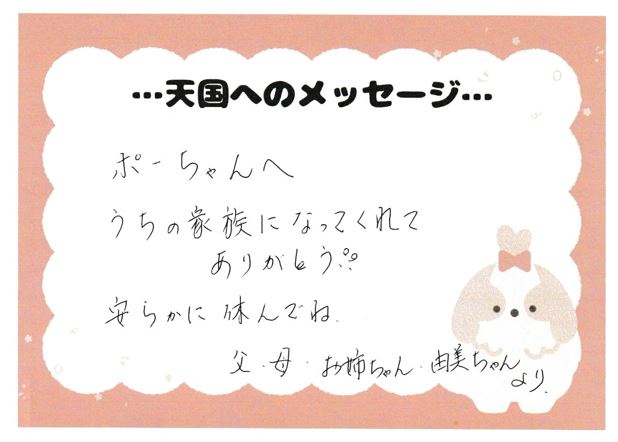 …天国へのメッセージ…
ポーちゃんへ
うちの家族になってくれて
ありがとう!!
安らかに休んでね.
父・母・お姉ちゃん・由美ちゃん
より.